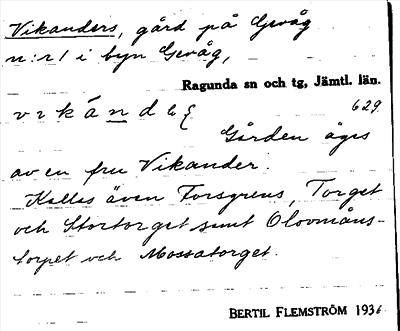 Vikanders, gård på Gevåg
n:r 1 i byn Gevåg,
Ragunda sn och tg, Jämtl. län.
629.
Gården ägs
av en fru Vikander.
Kallas även Forsgrens, Torget
och Stortorget samt Olovmåns-
torpet och Mossatorget.
BERTIL FLEMSTRÖM 1936